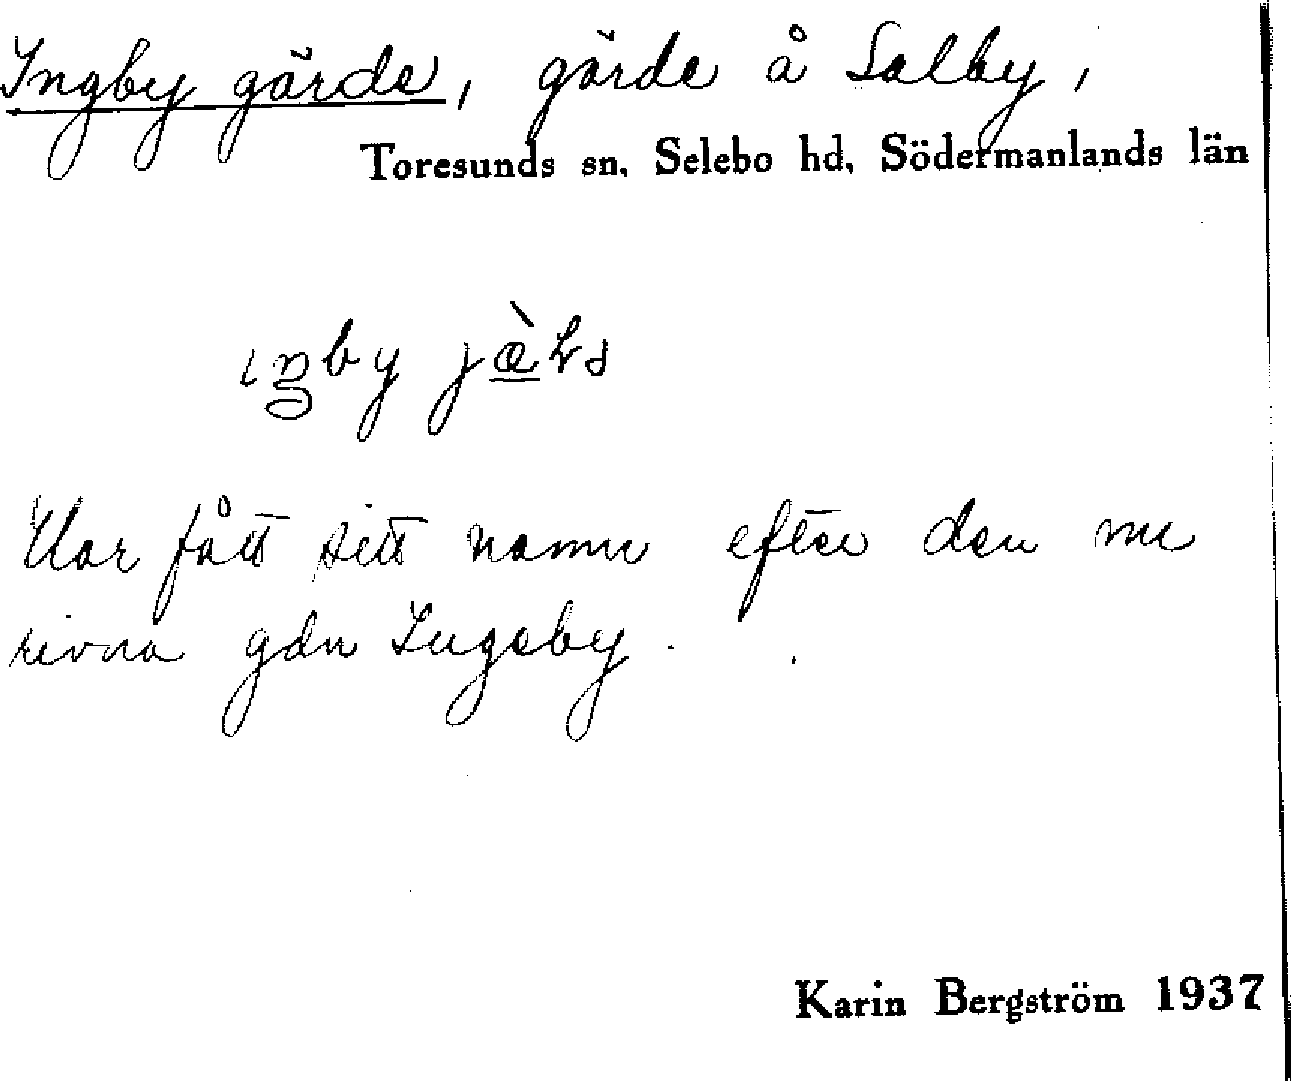 Ingby gärde, gärde å Salby,
Toresunds sn, Selebo hd, Södermanlands län
Har fått sitt namn efter den nu
rivna gdn Ingeby.
Karin Bergström 1937